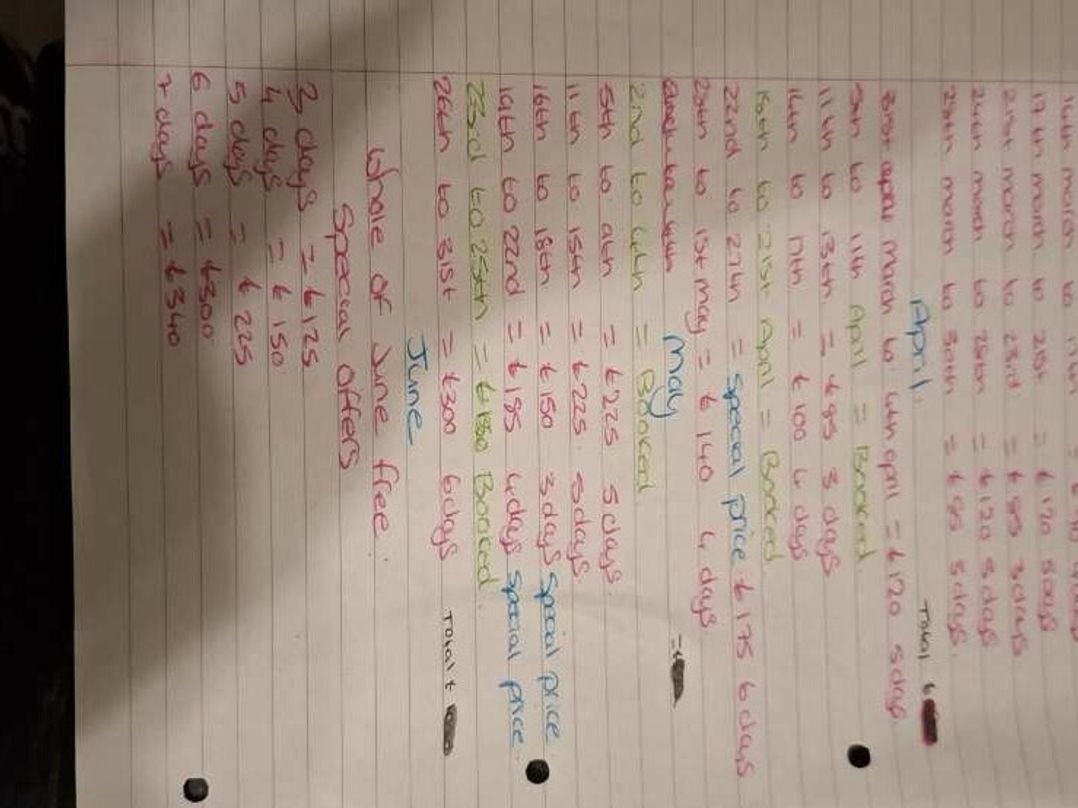 16th march to 17th
17th march to 21st = £120 5days
21st march to 23rd = £85 3days
24th march to 28th = £120 5days
28th march to 30th = £85 3days.
Total £
April.
31st march to 4th april = £120 5days
5th to 11th April = Booked
11th to 13th = £85 3 days
14th to 17th = £100 4 days
18th to 21st April = Booked
22nd to 27th = special price £175 6 days
28th to 1st may = £140 4 days.
= £
May
2nd to 4th = Booked
5th to 9th = £225 5 days.
11th to 15th = £225. 5days.
16th to 18th = £150 3 days special price
19th to 22nd = £185 4days special price.
23rd to 25th = Booked
26th to 31st = £300 6days
Total £
June
whole of June free.
Special offers
3 days = £125
4 days = £150
5 days = £225
6 days = £300
7 days = £340